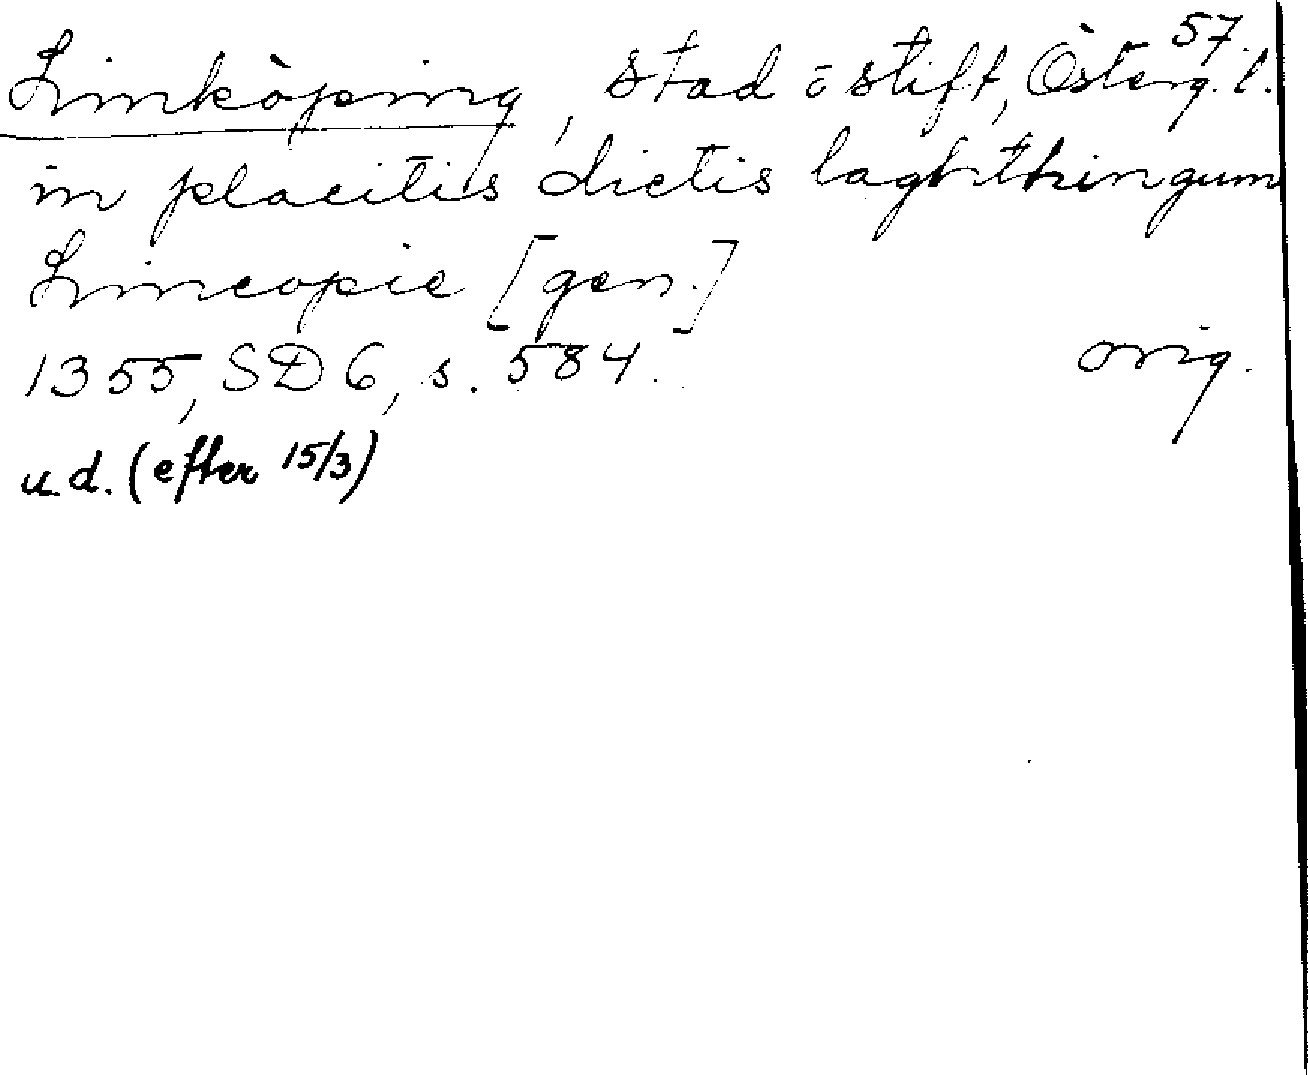 57.
Linköping, stad o stift, Österg. l.
in placitis dictis laghthingum
Lincopie [gen.]
1355, SD 6, s. 584. orig.
u. d. (efter 15/3)